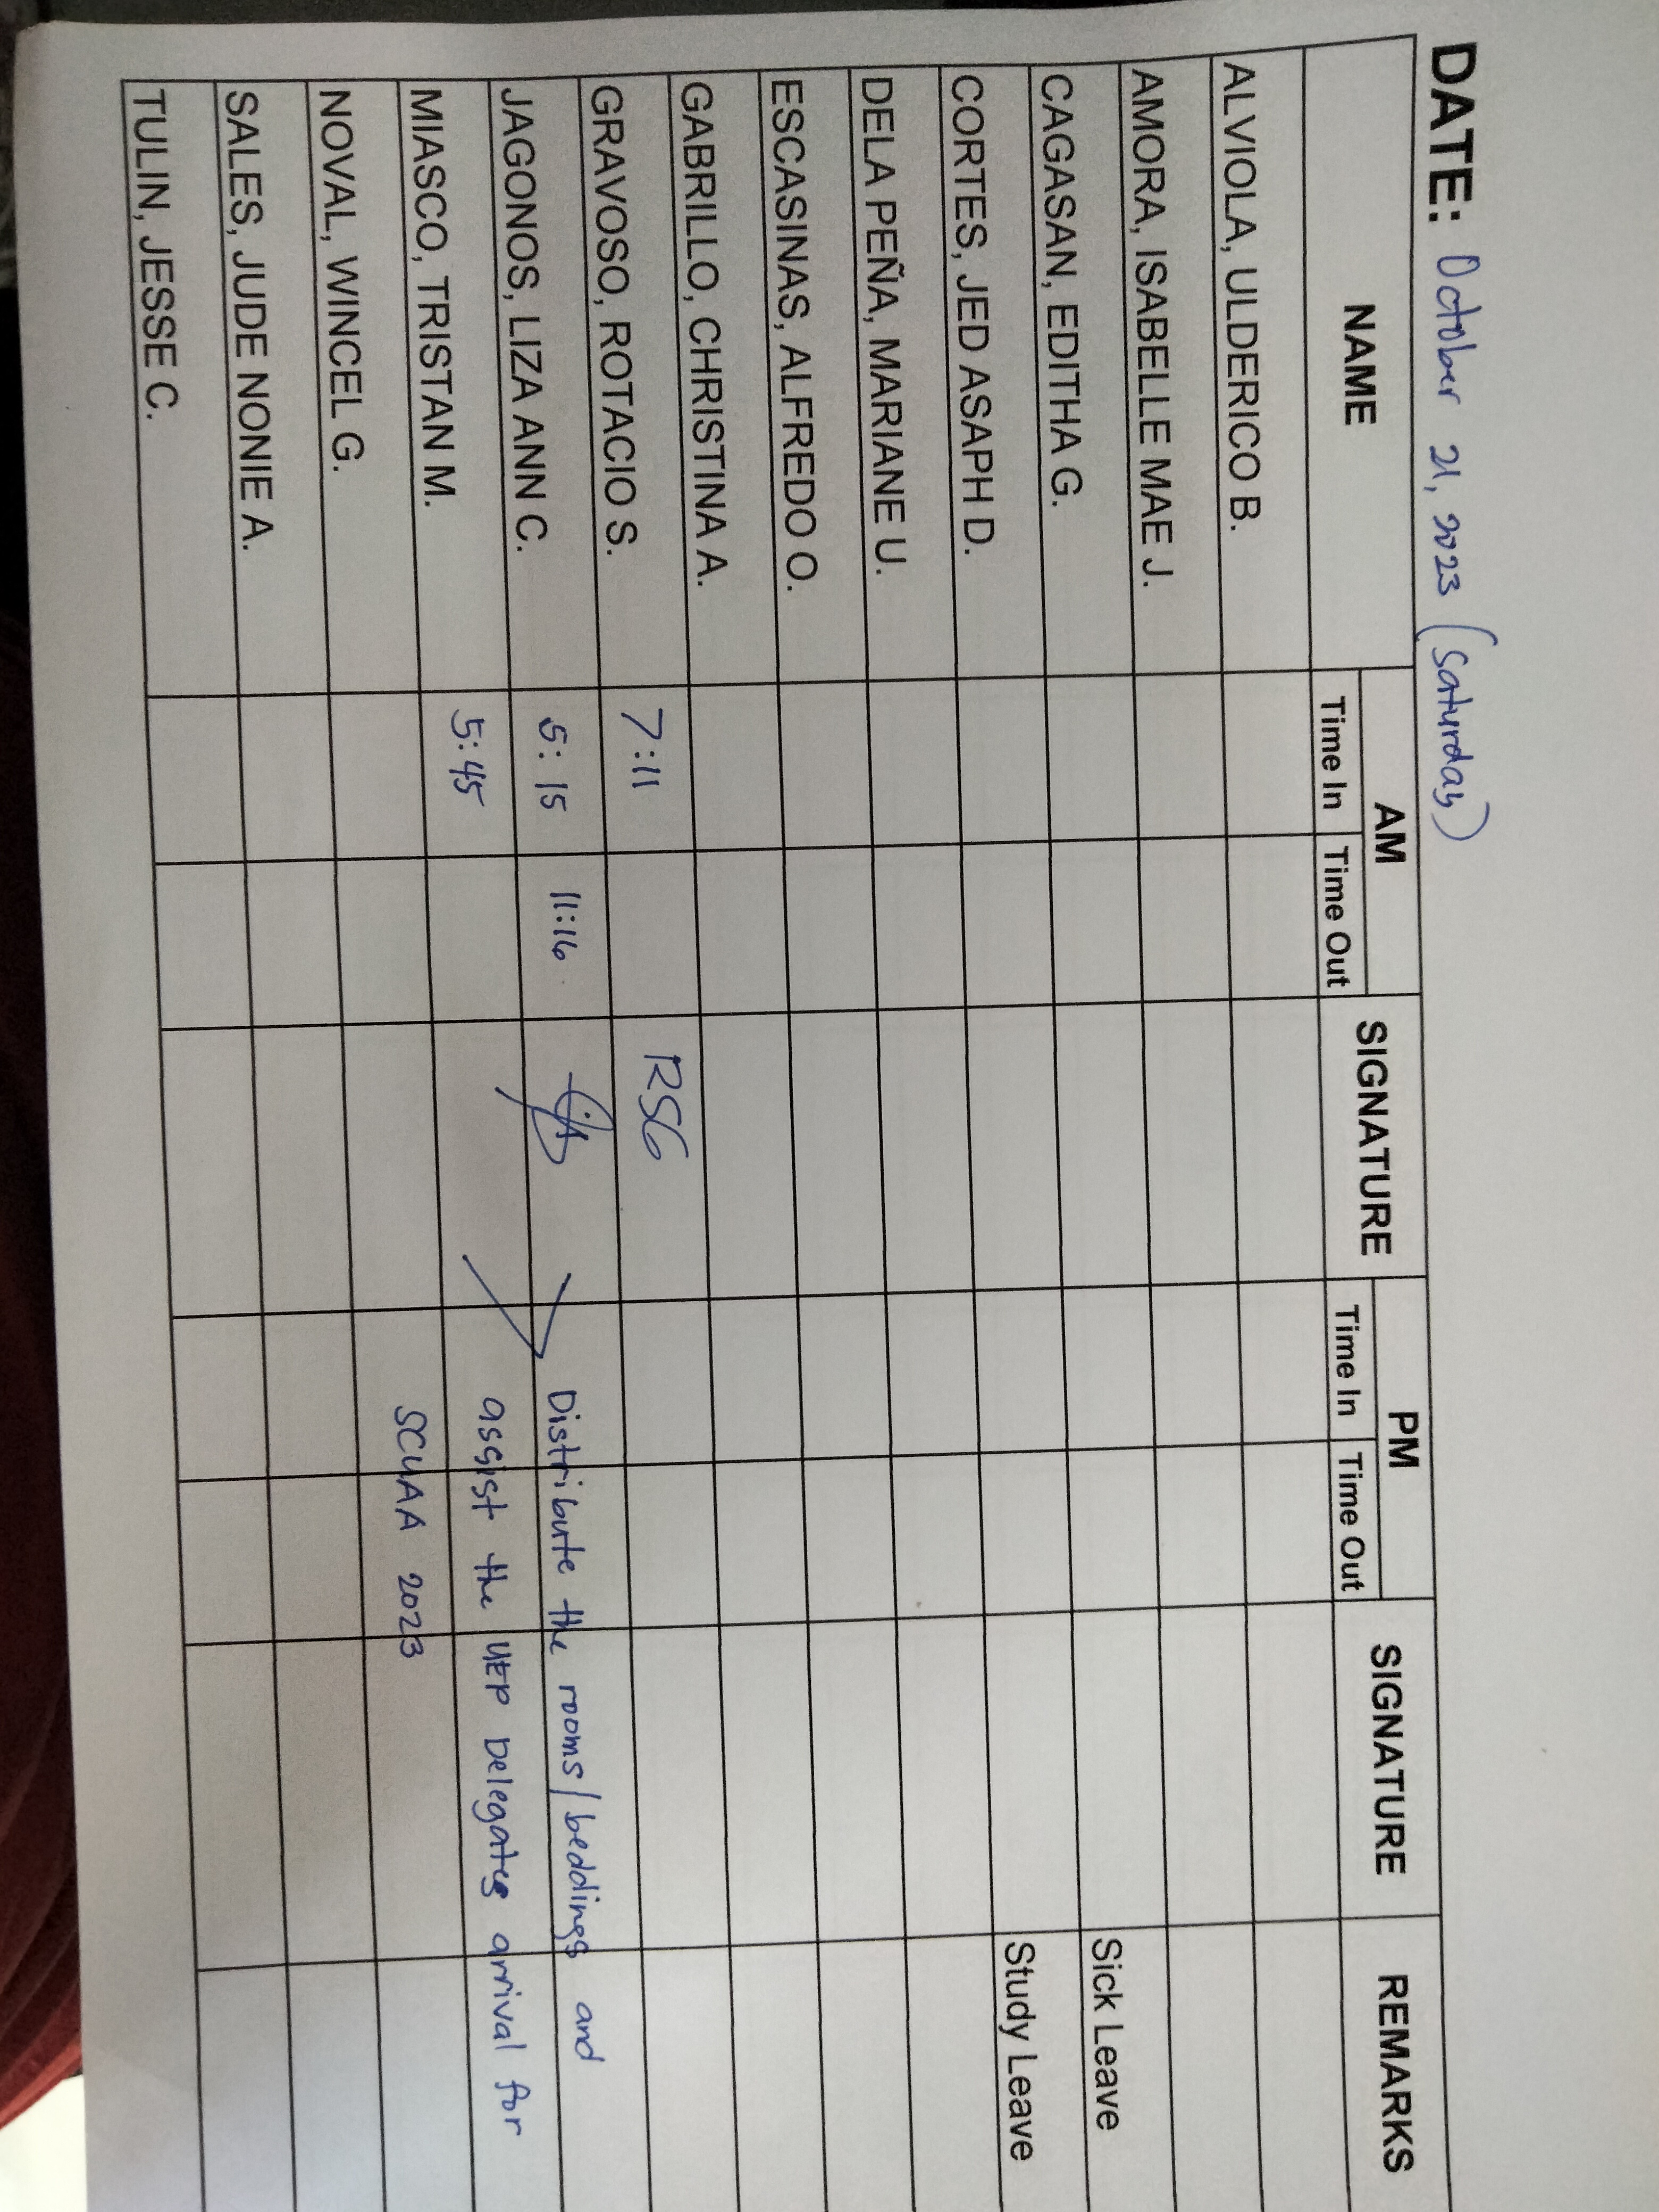 DATE: October 21, 2023 (Saturday)
NAME AM SIGNATURE PM SIGNATURE REMARKS
Time In Time Out Time In Time Out
ALVIOLA, ULDERICO B.
AMORA, ISABELLE MAE J.
CAGASAN, EDITHA G. Sick Leave
CORTES, JED ASAPH D. Study Leave
DELA PEÑA, MARIANE U.
ESCASINAS, ALFREDO O.
GABRILLO, CHRISTINA A.
GRAVOSO, ROTACIO S. 7:11 RSG
JAGONOS, LIZA ANN C. 5:15 11:16 Distribute the rooms/beddings and
MIASCO, TRISTAN M. 5:45 assist the UEP Delegates arrival for
NOVAL, WINCEL G. SCUAA 2023
SALES, JUDE NONIE A.
TULIN, JESSE C.